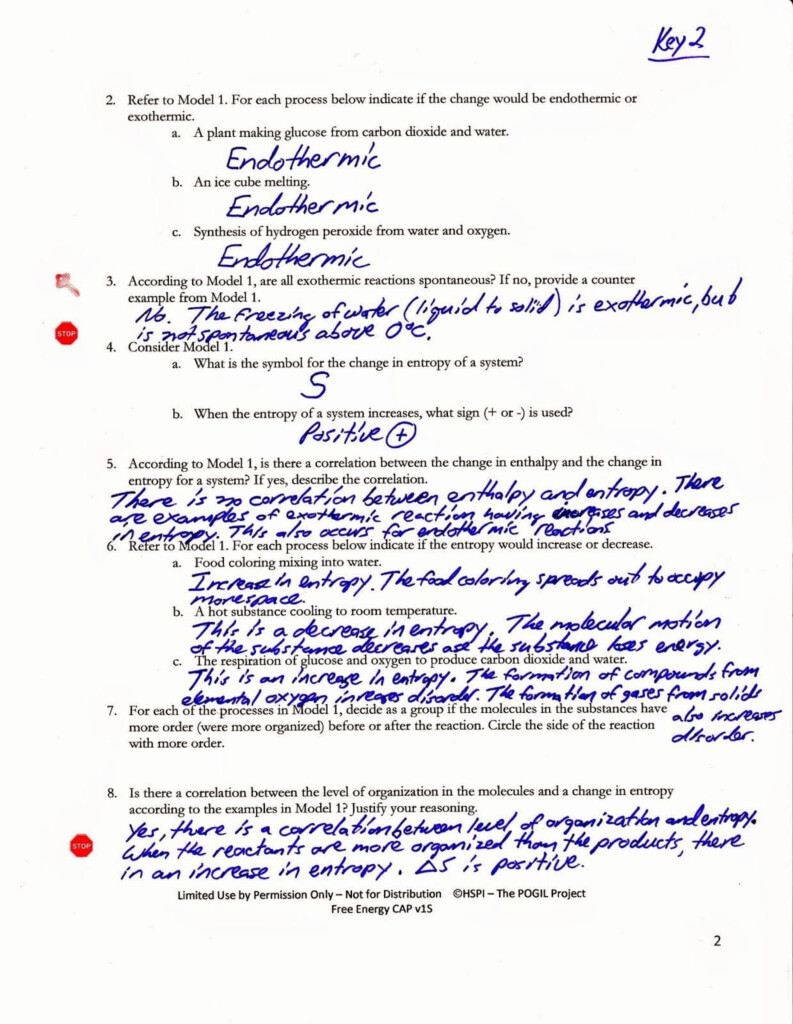 Key 2
2. Refer to Model 1. For each process below indicate if the change would be endothermic or
exothermic.
a. A plant making glucose from carbon dioxide and water.
Endothermic
b. An ice cube melting.
Endothermic
c. Synthesis of hydrogen peroxide from water and oxygen.
Endothermic
3. According to Model 1, are all exothermic reactions spontaneous? If no, provide a counter
example from Model 1.
No. The freezing of water (liquid to solid) is exothermic, but
is not spontaneous above 0°C.
STOP
4. Consider Model 1.
a. What is the symbol for the change in entropy of a system?
S
b. When the entropy of a system increases, what sign (+ or -) is used?
Positive (+)
5. According to Model 1, is there a correlation between the change in enthalpy and the change in
entropy for a system? If yes, describe the correlation.
There is no correlation between enthalpy and entropy. There
are examples of exothermic reaction having increases and decreases
in entropy. This also occurs for endothermic reactions
6. Refer to Model 1. For each process below indicate if the entropy would increase or decrease.
a. Food coloring mixing into water.
Increase in entropy. The food coloring spreads out to occupy
more space.
b. A hot substance cooling to room temperature.
This is a decrease in entropy. The molecular motion
of the substance decreases as the substance loses energy.
c. The respiration of glucose and oxygen to produce carbon dioxide and water.
This is an increase in entropy. The formation of compounds from
elemental oxygen inreases disorder. The formation of gases from solids
also increases
disorder.
7. For each of the processes in Model 1, decide as a group if the molecules in the substances have
more order (were more organized) before or after the reaction. Circle the side of the reaction
with more order.
8. Is there a correlation between the level of organization in the molecules and a change in entropy
according to the examples in Model 1? Justify your reasoning.
Yes, there is a correlation between level of organization and entropy.
When the reactants are more organized than the products, there
in an increase in entropy. ΔS is positive.
STOP
Limited Use by Permission Only – Not for Distribution ©HSPI – The POGIL Project
Free Energy CAP v1S
2